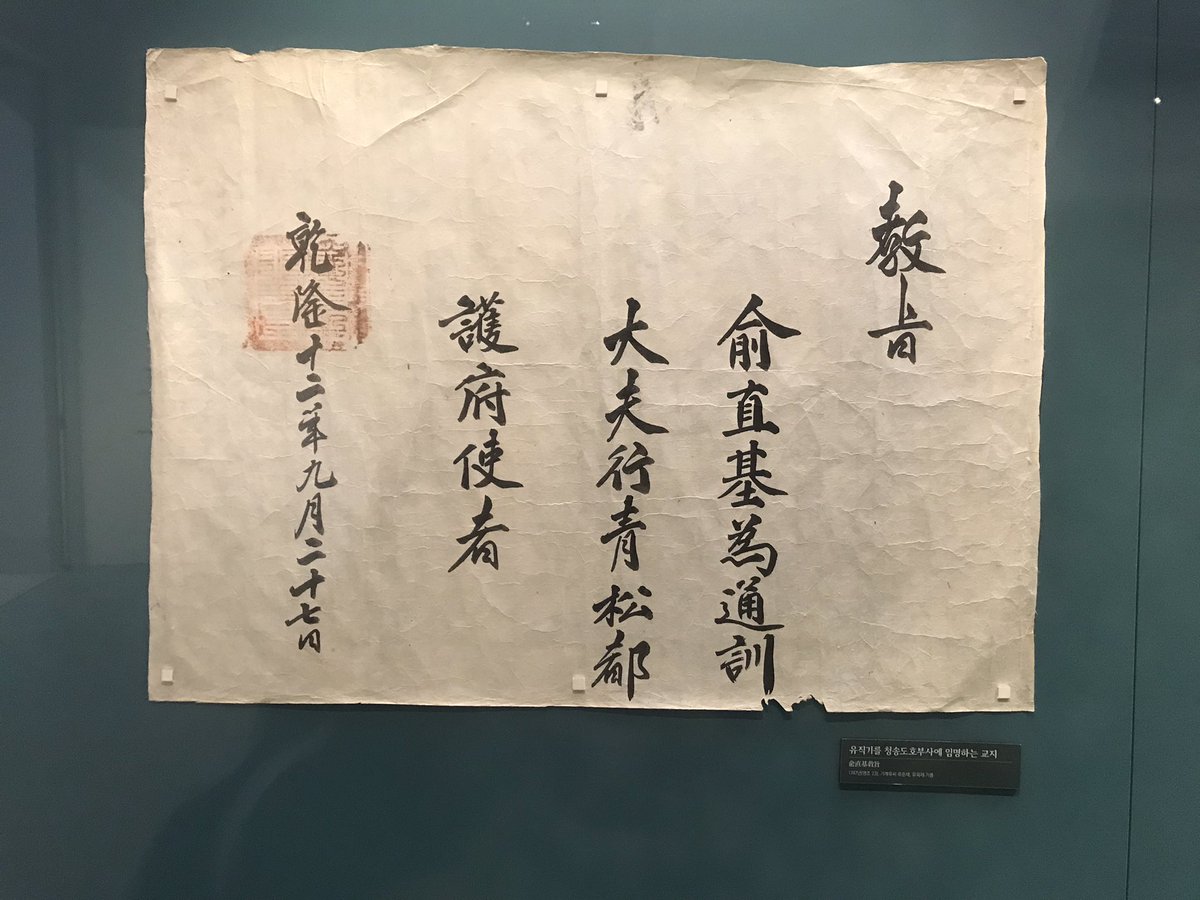 教旨
俞直基為通訓
大夫行青松都
護府使者
乾隆十二年九月二十七日
유직기를 청송도호부사에 임명하는 교지
俞直基敎旨